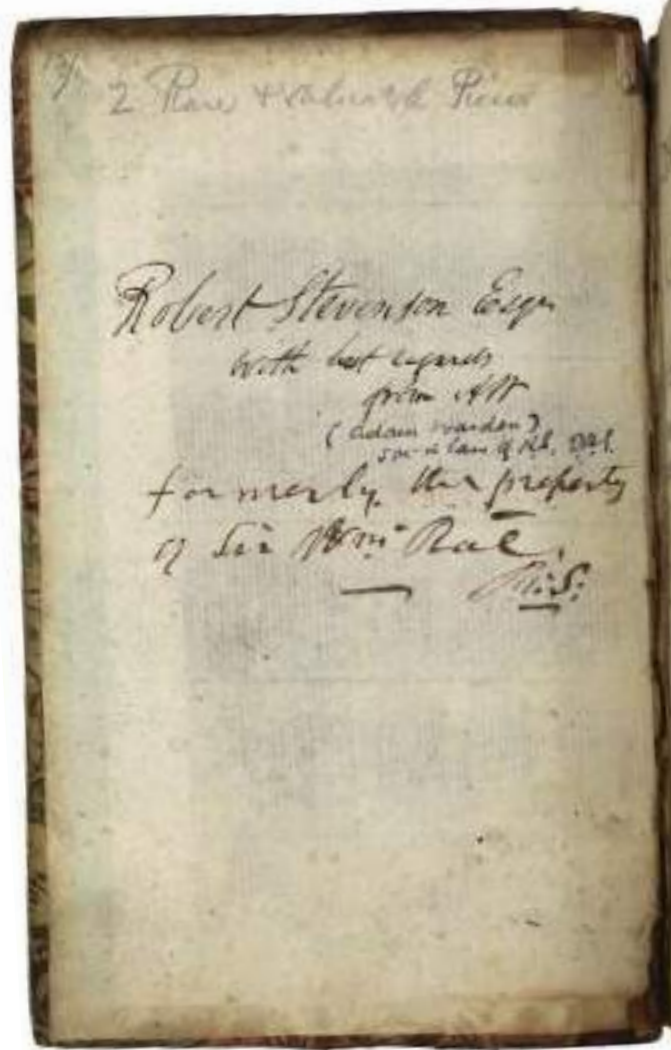 2 Rare & valuable
Robert Stevenson Esqr
with best regards
from AW
(Adam Warden)
son in law of
formerly the property
of Sir Wm. Rae.
R.S.